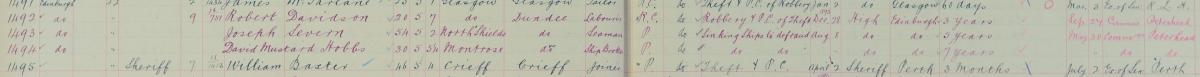 1491 Edinburgh James McFarlane 5 Glasgow Glasgow Tailor R.C. to Theft & P.C. of Robbery Jan 2 do Glasgow 60 days Mar. 3 Ex. of Sen.
1492 do 9 Robert Davidson 20 5 7 do Dundee Labourer R.C. to Robbery & P.C. of Theft Dec 28 High Edinburgh 3 years Sep. 24 Peterhead
1493 do Joseph Severn 54 5 2 North Shields do Seaman P. to Sinking Ships to defraud Aug 8 do do 5 years May 30 Peterhead
1494 do David Mustard Hobbs 30 5 5¼ Montrose do Ship Broker P. " do do " do do 7 years " do do
1495 " Sheriff 7 William Baxter 46 5 4 Crieff Crieff Joiner " P. to Theft & P.C. April 2 Sheriff Perth 3 months July 2 Ex. of Sen. Perth